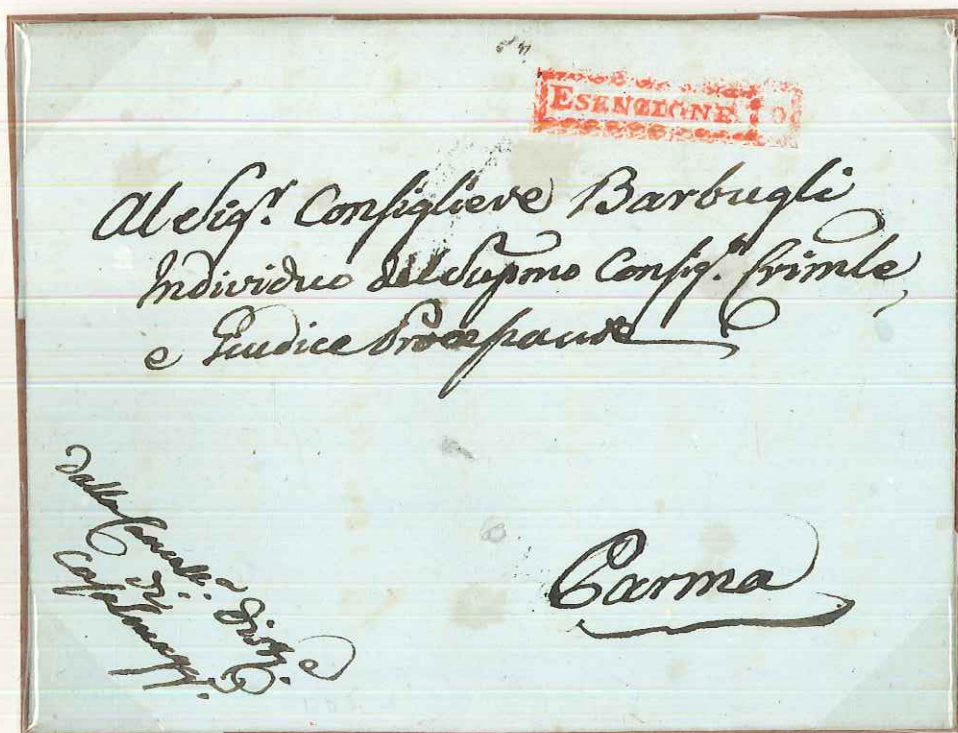 ESENZIONE
Al Sig.r Consigliere Barbugli
Individuo del Supmo Consig.o Crimle
e Giudice Processante
Parma
Dalla
di
Casalmagg.e